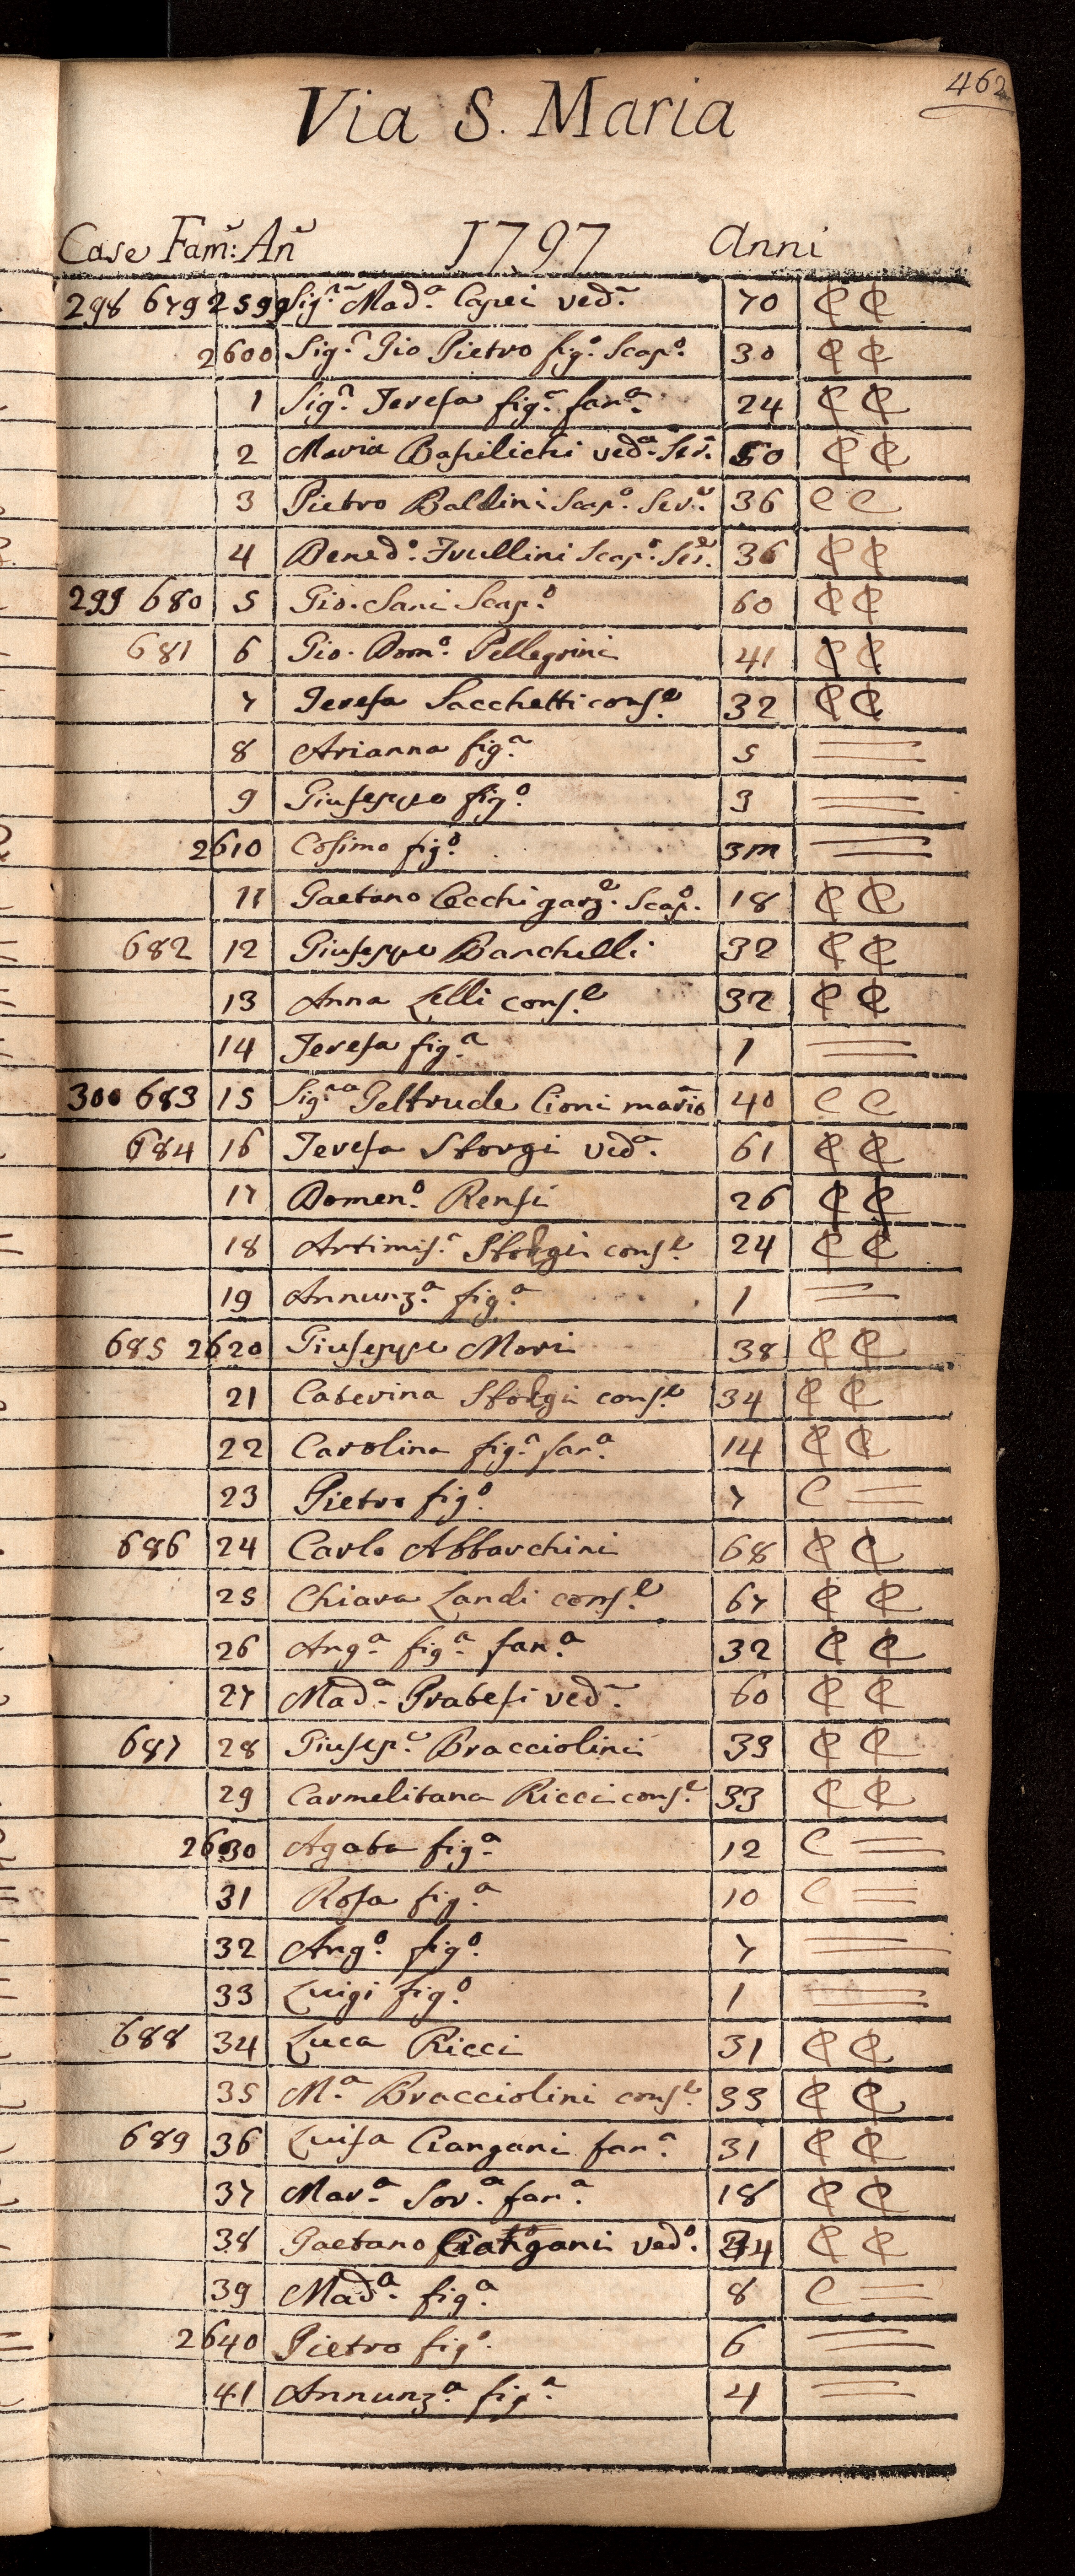 462
Via S. Maria
Case Fam: An 1797 Anni
298 679 2599 Sig.ra Mad.a Capei ved.a 70 C C
2600 Sig.r Gio Pietro fig.o Scap.o 30 C C
1 Sig.a Teresa fig.a fan.a 24 C C
2 Maria Basilichi ved.a Ser.a 50 C C
3 Pietro Baldini Scap.o Ser.e 36 C C
4 Bened.o Trullini Scap.o Ser.e 36 C C
299 680 5 Gio. Sani Scap.o 60 C C
681 6 Gio. Dom.o Pellegrini 41 C C
7 Teresa Sacchetti cons.e 32 C C
8 Arianna fig.a 5 =
9 Giuseppe fig.o 3 =
2610 Cosimo fig.o 3m =
11 Gaetano Cecchi garz.e Scap.o 18 C C
682 12 Giuseppe Banchelli 32 C C
13 Anna Lelli cons.e 32 C C
14 Teresa fig.a 1 =
300 683 15 Sig.ra Geltrude Cioni 40 C C
684 16 Teresa Storgi ved.a 61 C C
17 Domen.o Rensi 26 C C
18 Artimis.a Storgi cons.e 24 C C
19 Annunz.a fig.a 1 =
685 2620 Giuseppe Mori 38 C C
21 Caterina Storgi cons.e 34 C C
22 Carolina fig.a fan.a 14 C C
23 Pietro fig.o 7 C =
686 24 Carlo Abbarchini 68 C C
25 Chiara Landi cons.e 67 C C
26 Ang.a fig.a fan.a 32 C C
27 Mad.a Prabesi ved.a 60 C C
687 28 Giusep.e Bracciolini 39 C C
29 Carmelitana Ricci cons.e 33 C C
2630 Agata fig.a 12 C =
31 Rosa fig.a 10 C =
32 Ang.o fig.o 7 =
33 Luigi fig.o 1 =
688 34 Luca Ricci 31 C C
35 M.a Bracciolini cons.e 33 C C
689 36 Luisa Ciangani fan.a 31 C C
37 Mar.a Sor.a fan.a 18 C C
38 Gaetano Ciangani ved.o 34 C C
39 Mad.a fig.a 8 C =
2640 Pietro fig.o 6 =
41 Annunz.a fig.a 4 =